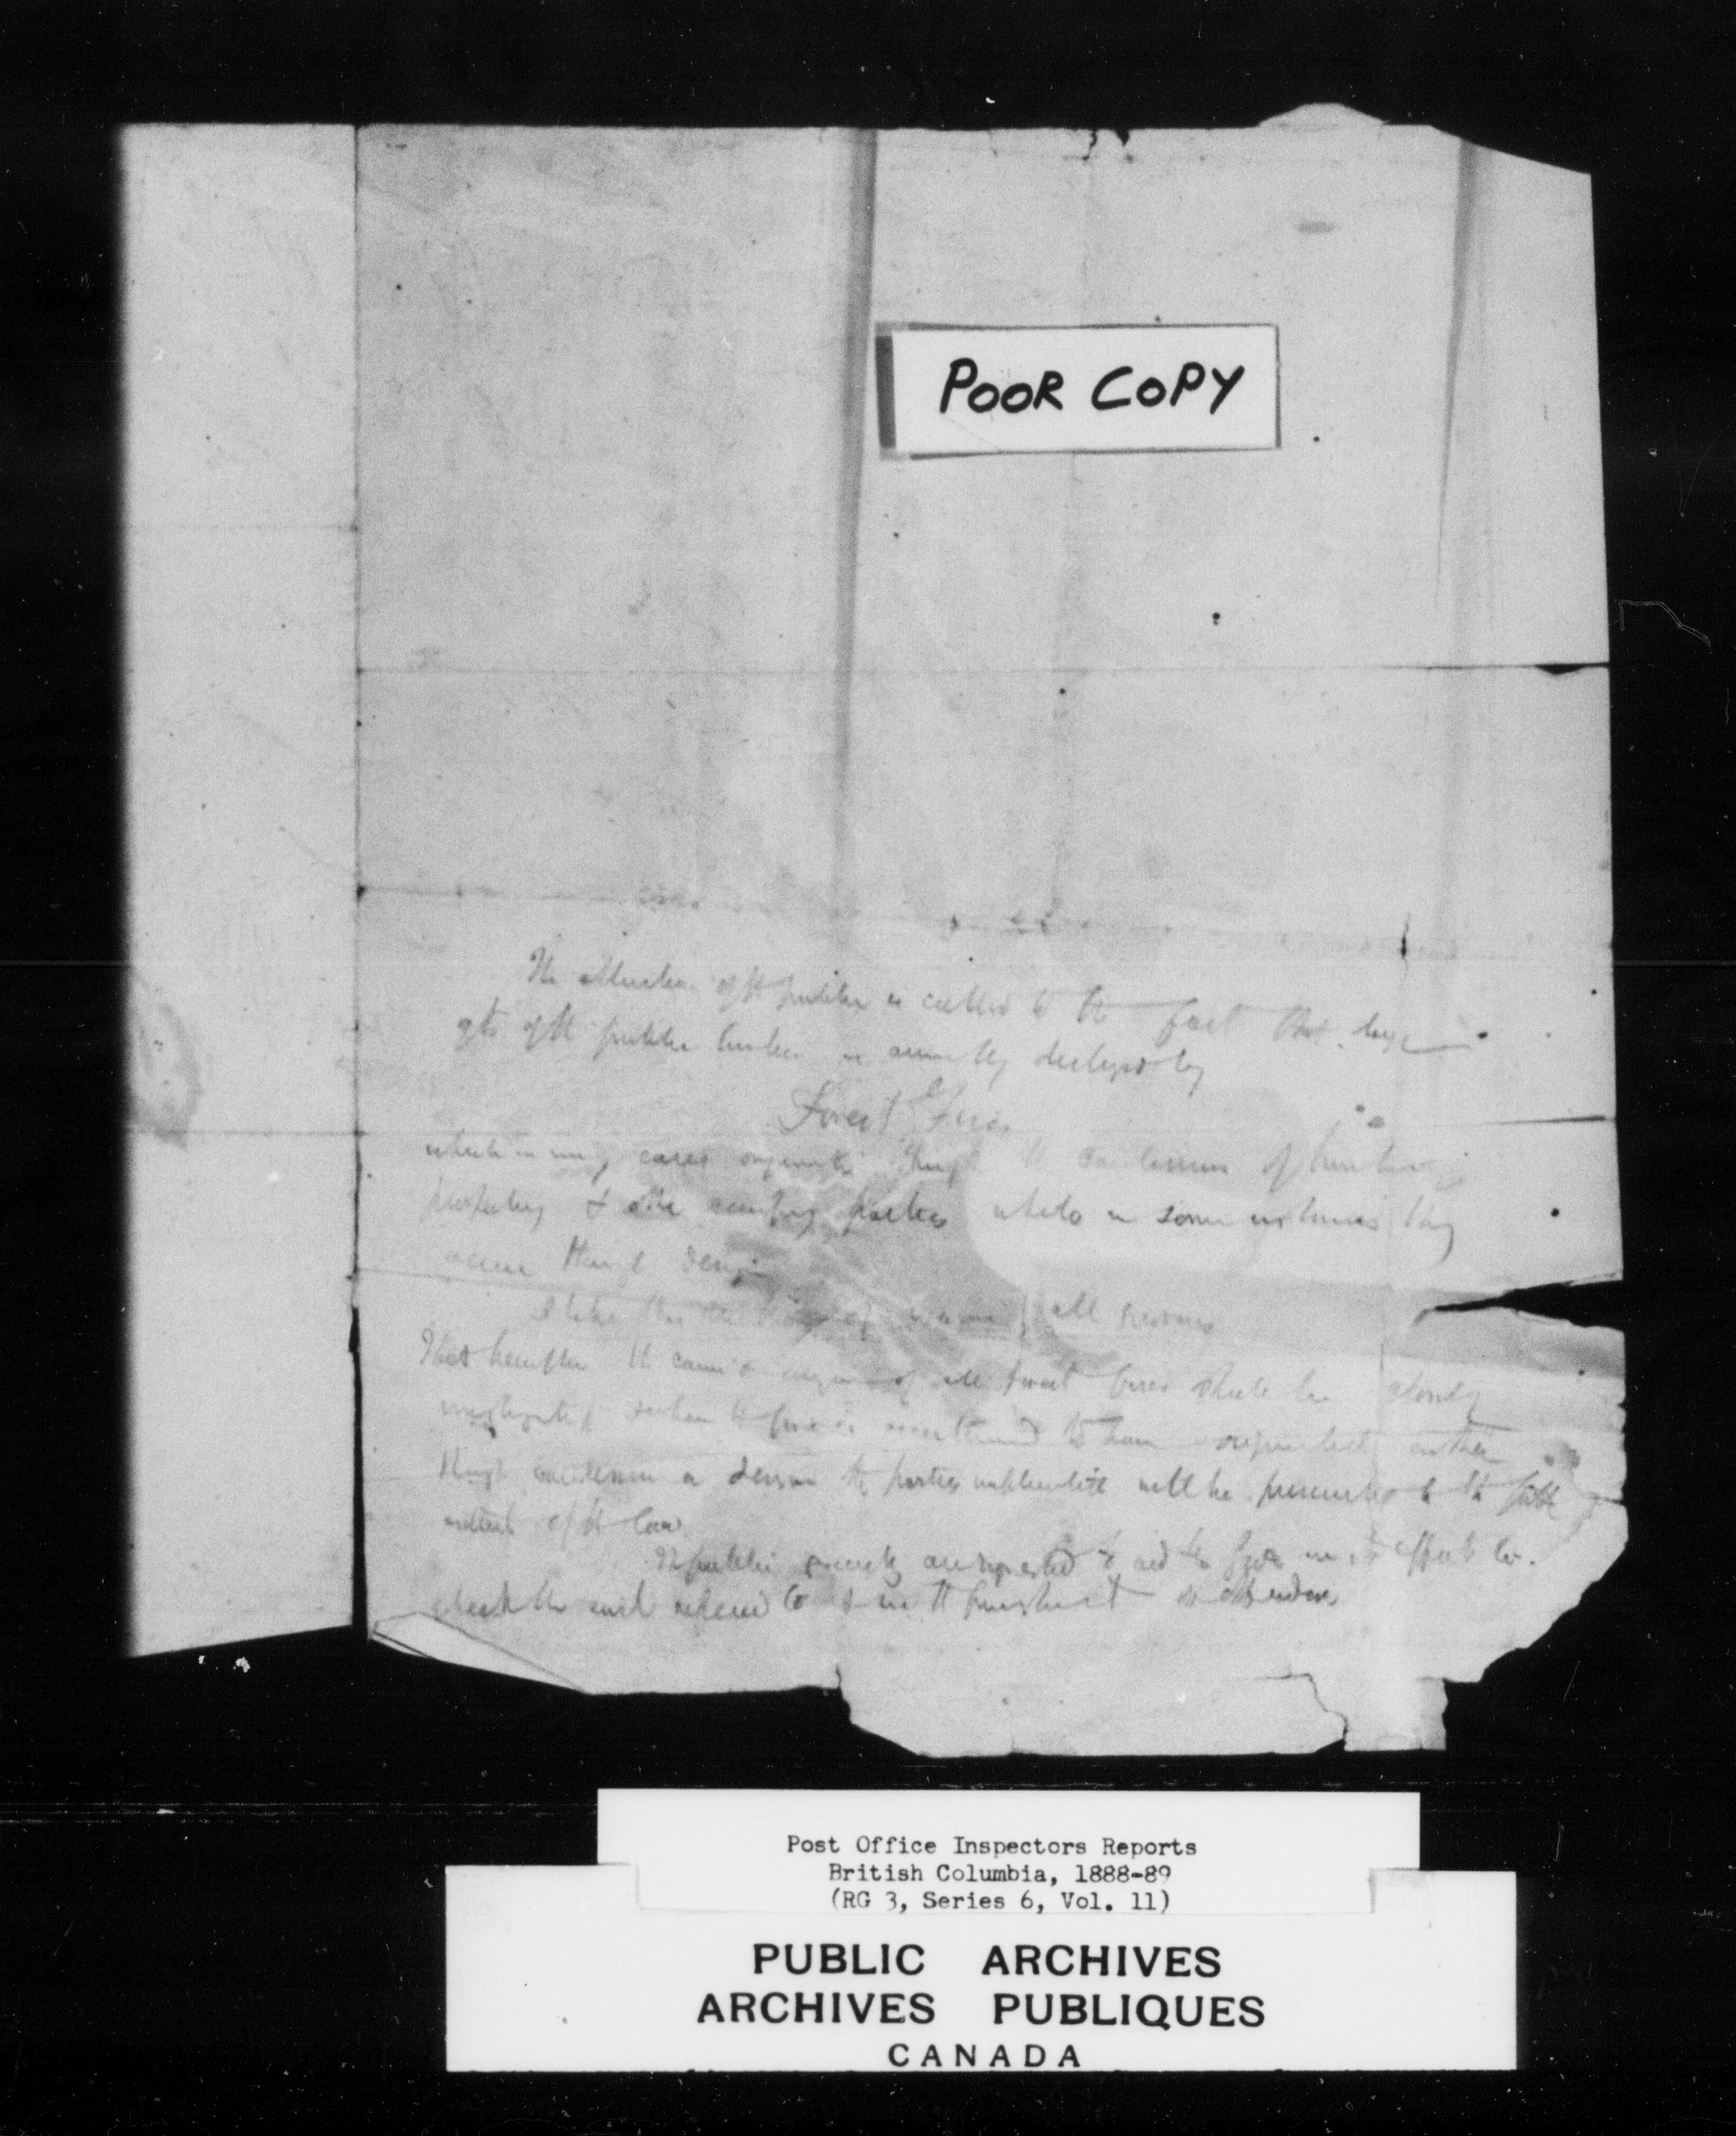 POOR COPY
The attention of the public is called to the fact that large
qts of the public timber is annually destroyed by
Forest Fires
which in many cases originate through the carelessness of hunting
prospecting & other camping parties while in some instances they
occur through design
I take this of warning all persons
That hereafter the cause & origin of all forest fires shall be closely
investigated & when the fire is ascertained to have originated either
through carelessness or design the parties implicated will be prosecuted to the full
extent of the law
The public are requested to aid the in its efforts to
check the evil referred to & in the punishment of offenders
Post Office Inspectors Reports
British Columbia, 1888-89
(RG 3, Series 6, Vol. 11)
PUBLIC ARCHIVES
ARCHIVES PUBLIQUES
CANADA